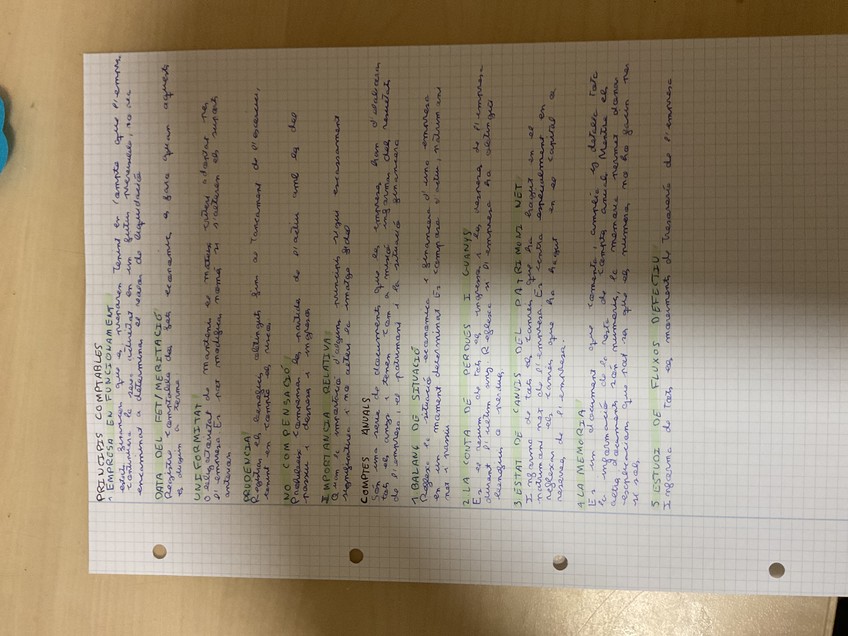 PRINCIPIS COMPTABLES
1 EMPRESA EN FUNCIONAMENT
que es preparen tenint en compte que l'empre
continuarà la seva activitat en un futur previsible, no va
encaminat a determinar el valor de liquidació
DATA DEL FET/MERETACIÓ
Registre comptable des fets econòmics es farà quan aquests
es duguin a terme
UNIFORMITAT
Obligatorietat de mantenir el mateix criteri adoptat per
l'empresa Es pot modificar només si s'alteren els suports
anteriors
PRUDENCIA
Registrar els beneficis obtinguts fins al tancament de l'exercici,
tenint en compte els riscs
NO COMPENSACIÓ
Prohibeix compensar les partides de l'actiu amb les del
passiu i despeses i ingressos
IMPORTANCIA RELATIVA
Quan la importància d'algun principi sigui escassament
significativa i no alteri la imatge fidel
COMPTES ANUALS
Son una serie de documents que les empreses han d'elaborar
tots els anys i tenen com a missió informar dels resultats
de l'empresa, el patrimoni i la situació financera
1 BALANÇ DE SITUACIÓ
Reflexa la situació econòmica i financera d'una empresa
en un moment determinat Es compara d'actiu, patrimoni
net passiu
2 LA CONTA DE PERDUES I GUANYS
Es un resum de tots els ingressos i les despeses de l'empresa
durant l'ultim any Reflexa si l'empresa ha obtingut
beneficis o perdues
3 ESTAT DE CANVIS DEL PATRIMONI NET
Informe de tots els canvis que hi hagut en el
patrimoni net de l'empresa Es centra especialment en
reflexar els canvis que ha hagut en el capital o
reserves de l'empresa.
4 LA MEMORIA
Es un document que comenta, amplia i detalla tota
la informació de la resta de comptes anuals Mentre els
altres documents són numerics, la memoria permet donar
explicacions que pot ser que els numeros no ho facin per
si sols
5 ESTUDI DE FLUXOS DEFECTIU
Informe de tots els moviments de Tresoreria de l'empresa